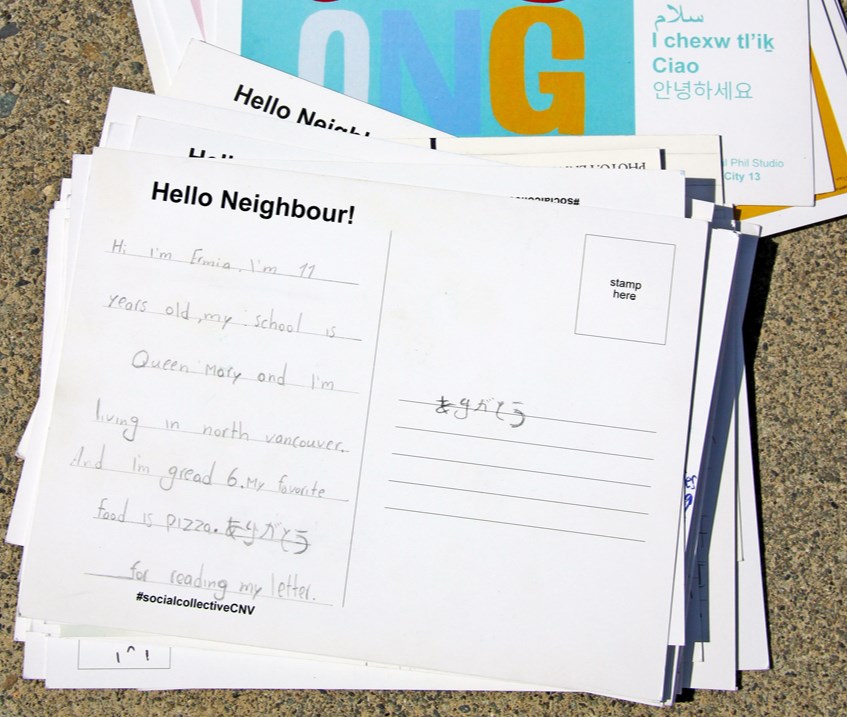 ONG
سلام
I chexw tl'iḵ
Ciao
안녕하세요
Phil Studio
City 13
Hello
Hello Neighbour!
stamp
here
Hi I'm Ermia. I'm 11
years old, my school is
Queen Mary and I'm
living in north vancouver.
And im gread 6. My favorite
food is pizza. ありがとう
for reading my letter.
#socialcollectiveCNV
ありがとう